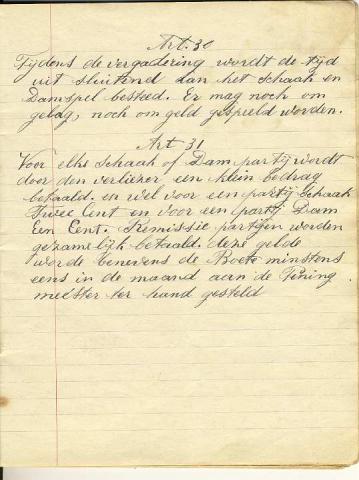 Art. 30
Tijdens de vergadering wordt de tijd
uit sluitend aan het Schaak en
Damspel besteed. Er mag noch om
gelag, noch om geld gespeeld worden.
Art 31
Voor elke Schaak of Dam partij wordt
door den verliezer een klein bedrag
betaald. en wel voor een partij Schaak
Twee Cent en voor een partij Dam
Een Cent. Remissie partijen worden
gezamelijk betaald. deze gelde
worde benevens de Boete minstens
eens in de maand aan de Pening
meester ter hand gesteld